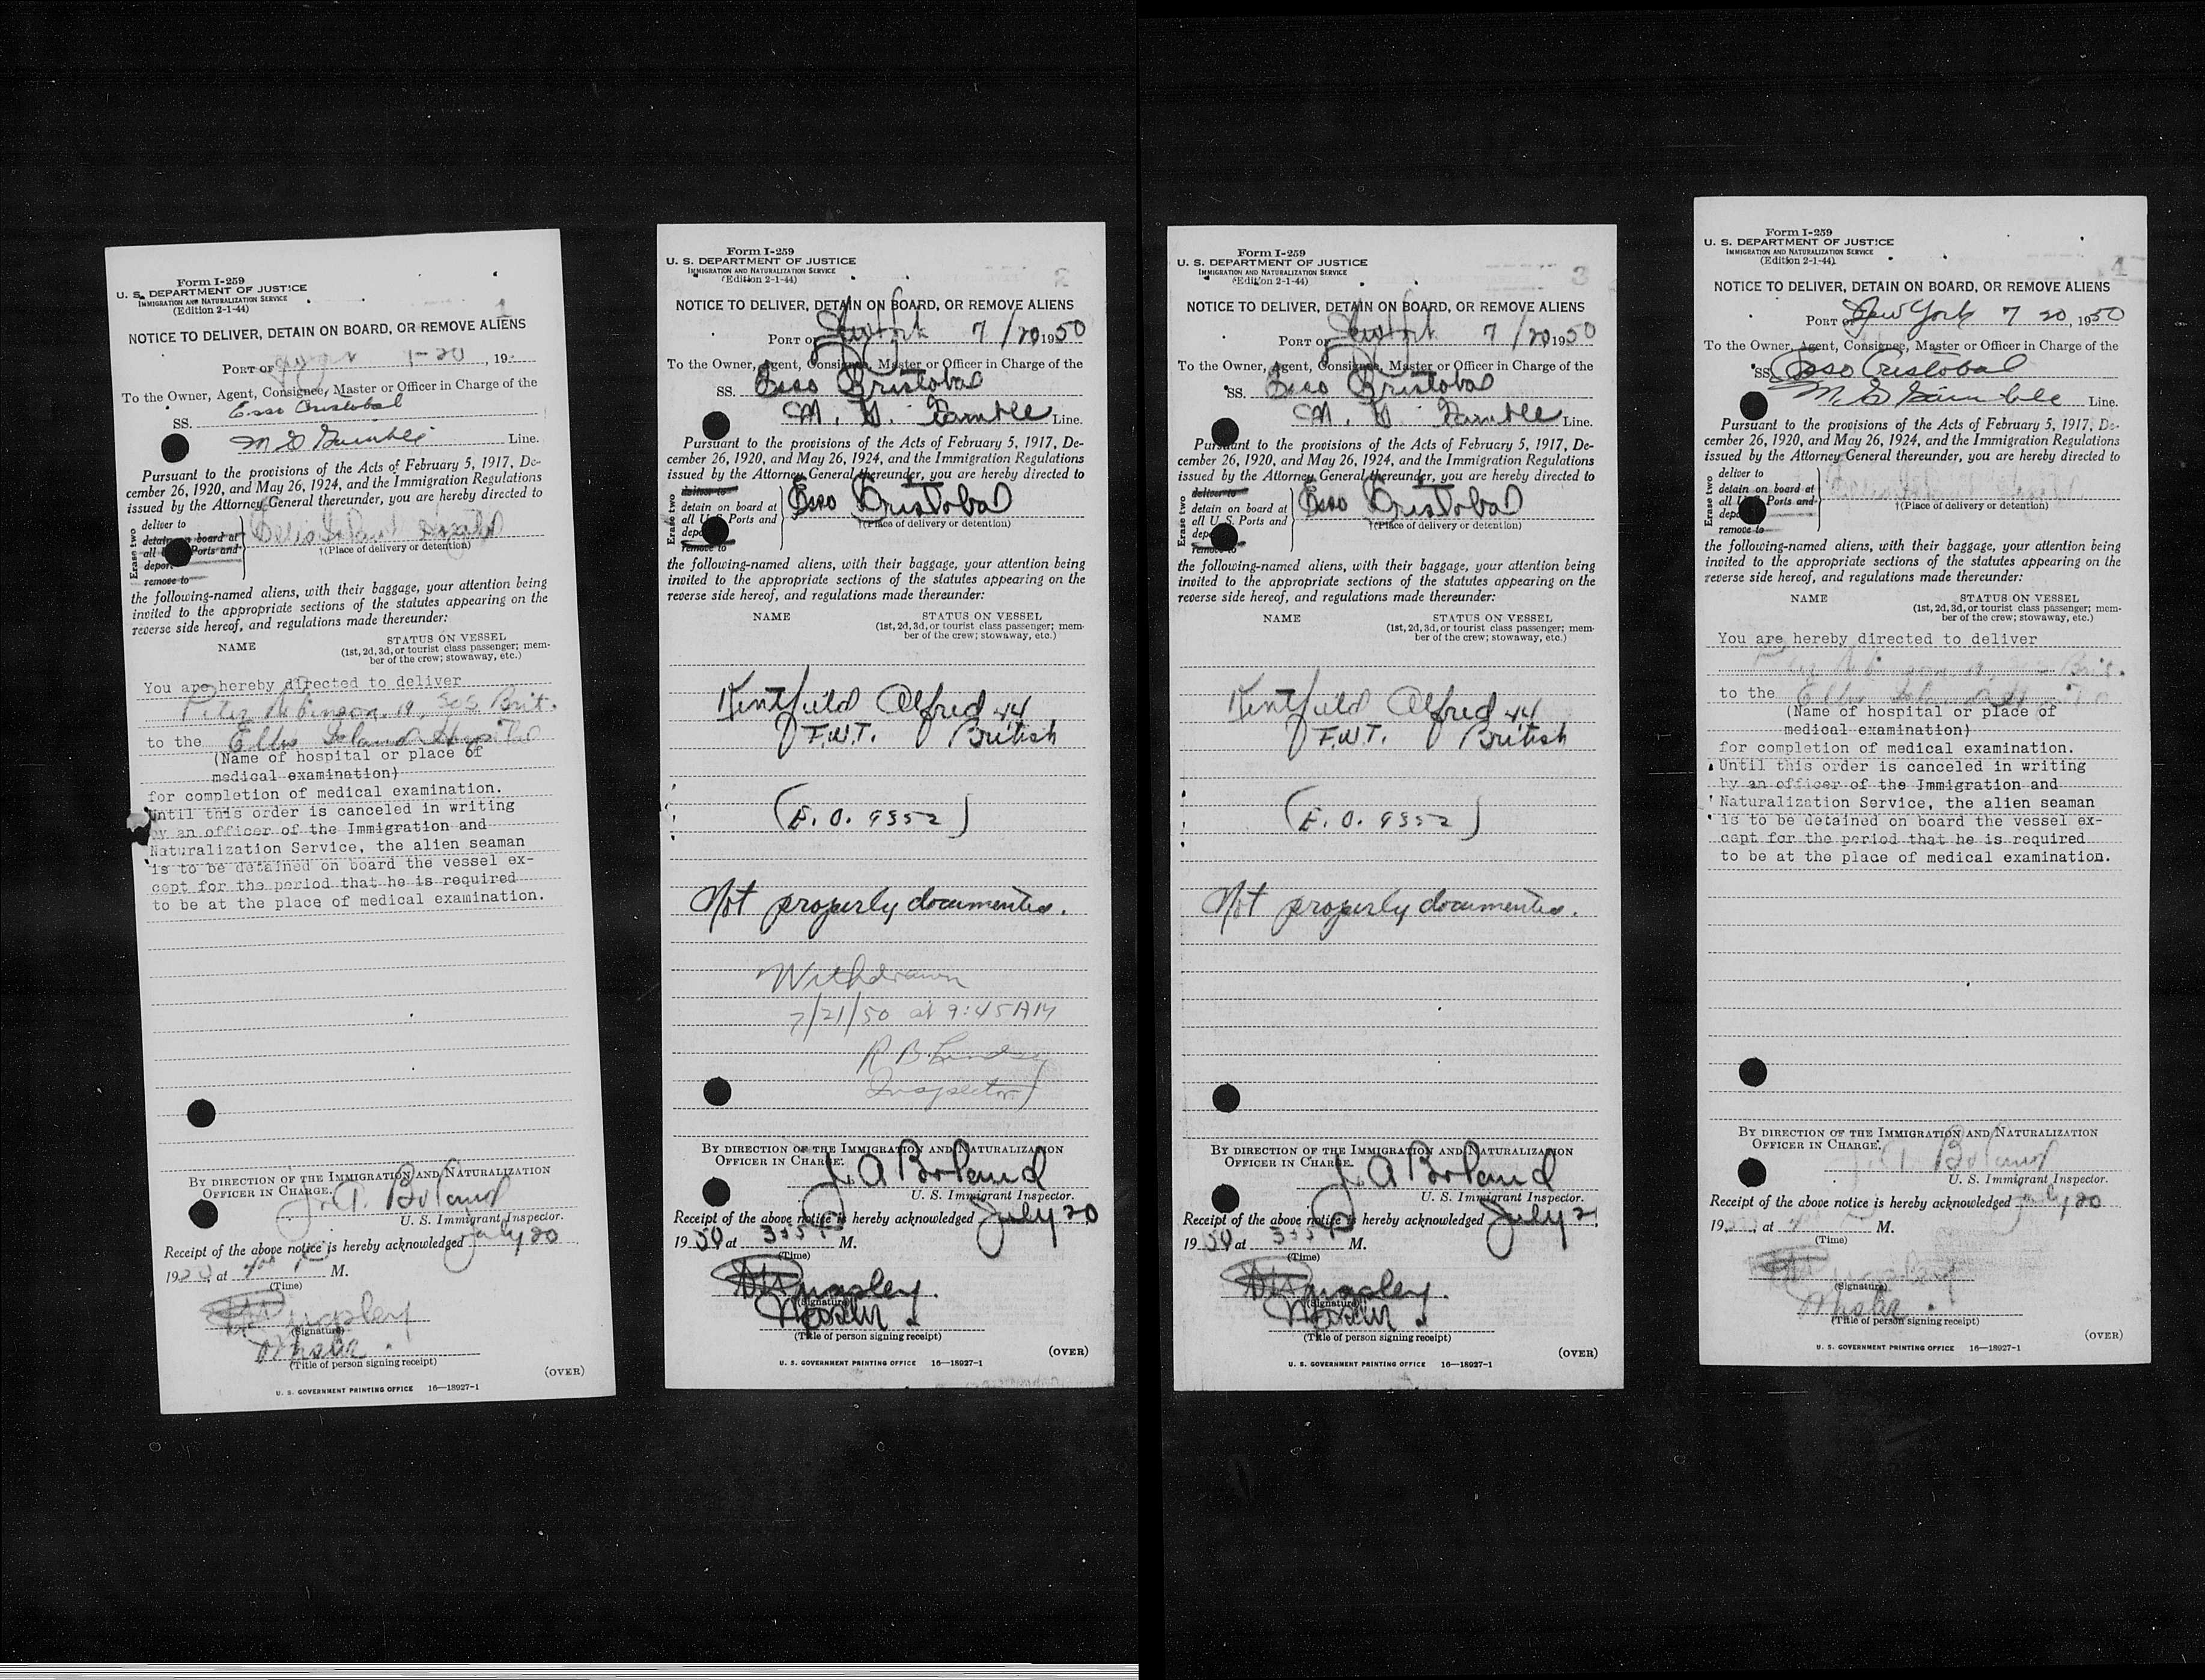 Form I-259
U. S. DEPARTMENT OF JUSTICE
IMMIGRATION AND NATURALIZATION SERVICE
(Edition 2-1-44)
1
NOTICE TO DELIVER, DETAIN ON BOARD, OR REMOVE ALIENS
PORT OF 7-20, 19
To the Owner, Agent, Consignee, Master or Officer in Charge of the
SS. Esso Cristobal
M D Line.
Pursuant to the provisions of the Acts of February 5, 1917, De-
cember 26, 1920, and May 26, 1924, and the Immigration Regulations
issued by the Attorney General thereunder, you are hereby directed to
Erase two
deliver to
detain on board at
all Ports and
deport
remove to
Ellis Island Hospital
†(Place of delivery or detention)
the following-named aliens, with their baggage, your attention being
invited to the appropriate sections of the statutes appearing on the
reverse side hereof, and regulations made thereunder:
NAME
STATUS ON VESSEL
(1st, 2d, 3d, or tourist class passenger; mem-
ber of the crew; stowaway, etc.)
You are hereby directed to deliver
Peter Robinson. 19, Brit.
to the Ellis Island Hospital
(Name of hospital or place of
medical examination)
for completion of medical examination.
Until this order is canceled in writing
by an officer of the Immigration and
Naturalization Service, the alien seaman
is to be detained on board the vessel ex-
cept for the period that he is required
to be at the place of medical examination.
BY DIRECTION OF THE IMMIGRATION AND NATURALIZATION
OFFICER IN CHARGE.
J. A. Boland
U. S. Immigrant Inspector.
Receipt of the above notice is hereby acknowledged July 20
19 , at 4 M.
(Time)
(Signature)
(Title of person signing receipt)
(OVER)
U. S. GOVERNMENT PRINTING OFFICE 16—18927-1
Form I-259
U. S. DEPARTMENT OF JUSTICE
IMMIGRATION AND NATURALIZATION SERVICE
(Edition 2-1-44)
2
NOTICE TO DELIVER, DETAIN ON BOARD, OR REMOVE ALIENS
PORT OF New York 7/20 1950
To the Owner, Agent, Consignee, Master or Officer in Charge of the
SS. Esso Cristobal
M. D. Line.
Pursuant to the provisions of the Acts of February 5, 1917, De-
cember 26, 1920, and May 26, 1924, and the Immigration Regulations
issued by the Attorney General thereunder, you are hereby directed to
Erase two
deliver to
detain on board at
all U. S. Ports and
remove to
Esso Cristobal
†(Place of delivery or detention)
the following-named aliens, with their baggage, your attention being
invited to the appropriate sections of the statutes appearing on the
reverse side hereof, and regulations made thereunder:
NAME
STATUS ON VESSEL
(1st, 2d, 3d, or tourist class passenger; mem-
ber of the crew; stowaway, etc.)
Kentfield Alfred 44
F.W.T. British
(E. O. 9352)
Not properly documented.
Withdrawn
7/21/50 at 9:45 AM
R B Lindsey
Inspector
BY DIRECTION OF THE IMMIGRATION AND NATURALIZATION
OFFICER IN CHARGE.
J. A Boland
U. S. Immigrant Inspector.
Receipt of the above notice is hereby acknowledged July 20
19 50 at 3:55 P M.
(Time)
(Signature)
(Title of person signing receipt)
(OVER)
U. S. GOVERNMENT PRINTING OFFICE 16—18927-1
Form I-259
U. S. DEPARTMENT OF JUSTICE
IMMIGRATION AND NATURALIZATION SERVICE
(Edition 2-1-44)
3
NOTICE TO DELIVER, DETAIN ON BOARD, OR REMOVE ALIENS
PORT OF New York 7/20 1950
To the Owner, Agent, Consignee, Master or Officer in Charge of the
SS. Esso Cristobal
M. D. Line.
Pursuant to the provisions of the Acts of February 5, 1917, De-
cember 26, 1920, and May 26, 1924, and the Immigration Regulations
issued by the Attorney General thereunder, you are hereby directed to
Erase two
deliver to
detain on board at
all U. S. Ports and
remove to
Esso Cristobal
†(Place of delivery or detention)
the following-named aliens, with their baggage, your attention being
invited to the appropriate sections of the statutes appearing on the
reverse side hereof, and regulations made thereunder:
NAME
STATUS ON VESSEL
(1st, 2d, 3d, or tourist class passenger; mem-
ber of the crew; stowaway, etc.)
Kentfield Alfred 44
F.W.T. British
(E. O. 9352)
Not properly documented.
BY DIRECTION OF THE IMMIGRATION AND NATURALIZATION
OFFICER IN CHARGE.
J. A Boland
U. S. Immigrant Inspector.
Receipt of the above notice is hereby acknowledged July 2
19 50 at 3:55 P M.
(Time)
(Signature)
(Title of person signing receipt)
(OVER)
U. S. GOVERNMENT PRINTING OFFICE 16—18927-1
Form I-259
U. S. DEPARTMENT OF JUSTICE
IMMIGRATION AND NATURALIZATION SERVICE
(Edition 2-1-44)
4
NOTICE TO DELIVER, DETAIN ON BOARD, OR REMOVE ALIENS
PORT OF New York 7 20, 1950
To the Owner, Agent, Consignee, Master or Officer in Charge of the
SS. Esso Cristobal
M D Line.
Pursuant to the provisions of the Acts of February 5, 1917, De-
cember 26, 1920, and May 26, 1924, and the Immigration Regulations
issued by the Attorney General thereunder, you are hereby directed to
Erase two
deliver to
detain on board at
all Ports and
remove to
†(Place of delivery or detention)
the following-named aliens, with their baggage, your attention being
invited to the appropriate sections of the statutes appearing on the
reverse side hereof, and regulations made thereunder:
NAME
STATUS ON VESSEL
(1st, 2d, 3d, or tourist class passenger; mem-
ber of the crew; stowaway, etc.)
You are hereby directed to deliver
Robinson 19, Brit.
to the Ellis Island
(Name of hospital or place of
medical examination)
for completion of medical examination.
Until this order is canceled in writing
by an officer of the Immigration and
Naturalization Service, the alien seaman
is to be detained on board the vessel ex-
cept for the period that he is required
to be at the place of medical examination.
BY DIRECTION OF THE IMMIGRATION AND NATURALIZATION
OFFICER IN CHARGE.
J. A. Boland
U. S. Immigrant Inspector.
Receipt of the above notice is hereby acknowledged July 20
19 , at 4 M.
(Time)
(Signature)
(Title of person signing receipt)
(OVER)
U. S. GOVERNMENT PRINTING OFFICE 16—18927-1